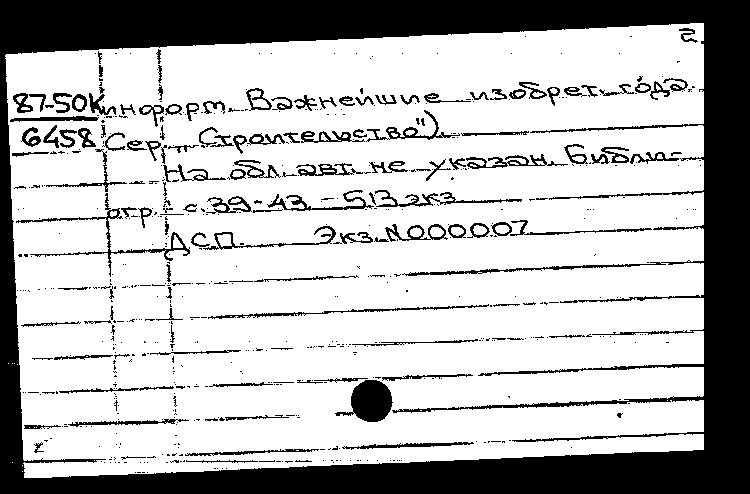 2.
87-50К информ. Важнейшие изобрет. года.
6458 Сер. „Строительство").
На обл. авт. не указан. Библи-
огр.: с. 39-43 - 513 экз
ДСП. Экз. N000007